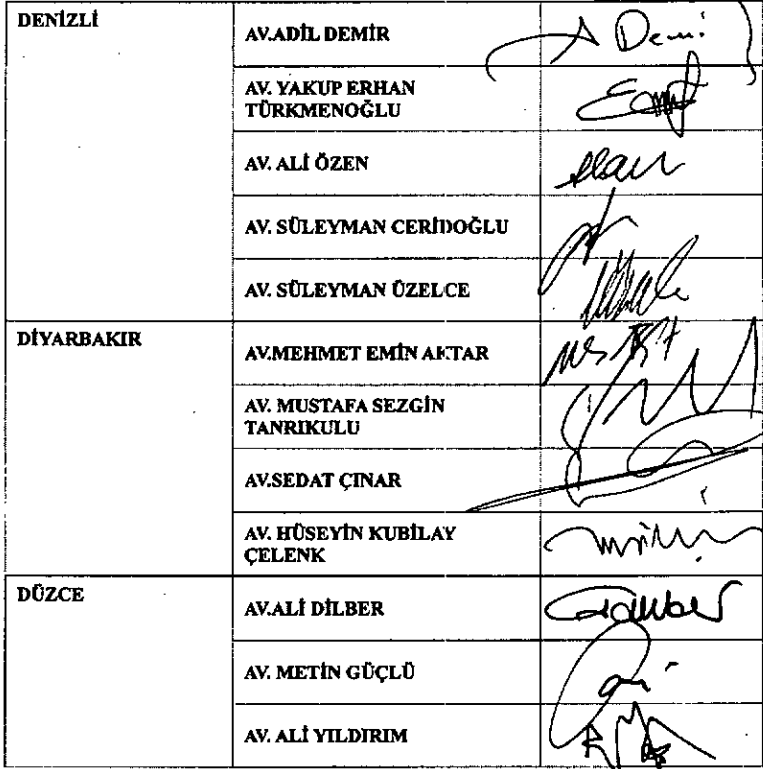 DENİZLİ
AV.ADİL DEMİR
A Demi
AV. YAKUP ERHAN
TÜRKMENOĞLU
AV. ALİ ÖZEN
AV. SÜLEYMAN CERİDOĞLU
AV. SÜLEYMAN ÜZELCE
DİYARBAKIR
AV.MEHMET EMİN AKTAR
AV. MUSTAFA SEZGİN
TANRIKULU
AV.SEDAT ÇINAR
AV. HÜSEYİN KUBİLAY
ÇELENK
DÜZCE
AV.ALİ DİLBER
AV. METİN GÜÇLÜ
AV. ALİ YILDIRIM